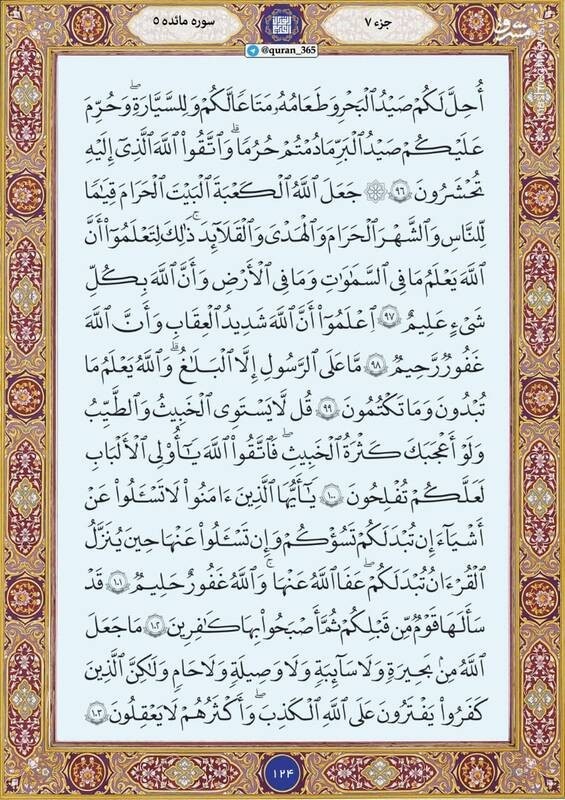 جزء ۷
سوره مائده ۵
@quran_365
أُحِلَّ لَكُمْ صَيْدُ ٱلْبَحْرِ وَطَعَامُهُۥ مَتَٰعًا لَّكُمْ وَلِلسَّيَّارَةِۖ وَحُرِّمَ
عَلَيْكُمْ صَيْدُ ٱلْبَرِّ مَا دُمْتُمْ حُرُمًاۗ وَٱتَّقُوا۟ ٱللَّهَ ٱلَّذِىٓ إِلَيْهِ
تُحْشَرُونَ ۹۶ ۞ جَعَلَ ٱللَّهُ ٱلْكَعْبَةَ ٱلْبَيْتَ ٱلْحَرَامَ قِيَٰمًا
لِّلنَّاسِ وَٱلشَّهْرَ ٱلْحَرَامَ وَٱلْهَدْىَ وَٱلْقَلَٰٓئِدَۚ ذَٰلِكَ لِتَعْلَمُوٓا۟ أَنَّ
ٱللَّهَ يَعْلَمُ مَا فِى ٱلسَّمَٰوَٰتِ وَمَا فِى ٱلْأَرْضِ وَأَنَّ ٱللَّهَ بِكُلِّ
شَىْءٍ عَلِيمٌ ۹۷ ٱعْلَمُوٓا۟ أَنَّ ٱللَّهَ شَدِيدُ ٱلْعِقَابِ وَأَنَّ ٱللَّهَ
غَفُورٌ رَّحِيمٌ ۹۸ مَّا عَلَى ٱلرَّسُولِ إِلَّا ٱلْبَلَٰغُۗ وَٱللَّهُ يَعْلَمُ مَا
تُبْدُونَ وَمَا تَكْتُمُونَ ۹۹ قُل لَّا يَسْتَوِى ٱلْخَبِيثُ وَٱلطَّيِّبُ
وَلَوْ أَعْجَبَكَ كَثْرَةُ ٱلْخَبِيثِۚ فَٱتَّقُوا۟ ٱللَّهَ يَٰٓأُو۟لِى ٱلْأَلْبَٰبِ
لَعَلَّكُمْ تُفْلِحُونَ ۱۰۰ يَٰٓأَيُّهَا ٱلَّذِينَ ءَامَنُوا۟ لَا تَسْـَٔلُوا۟ عَنْ
أَشْيَآءَ إِن تُبْدَ لَكُمْ تَسُؤْكُمْ وَإِن تَسْـَٔلُوا۟ عَنْهَا حِينَ يُنَزَّلُ
ٱلْقُرْءَانُ تُبْدَ لَكُمْ عَفَا ٱللَّهُ عَنْهَاۗ وَٱللَّهُ غَفُورٌ حَلِيمٌ ۱۰۱ قَدْ
سَأَلَهَا قَوْمٌ مِّن قَبْلِكُمْ ثُمَّ أَصْبَحُوا۟ بِهَا كَٰفِرِينَ ۱۰۲ مَا جَعَلَ
ٱللَّهُ مِنۢ بَحِيرَةٍ وَلَا سَآئِبَةٍ وَلَا وَصِيلَةٍ وَلَا حَامٍ وَلَٰكِنَّ ٱلَّذِينَ
كَفَرُوا۟ يَفْتَرُونَ عَلَى ٱللَّهِ ٱلْكَذِبَۖ وَأَكْثَرُهُمْ لَا يَعْقِلُونَ ۱۰۳
۱۲۴